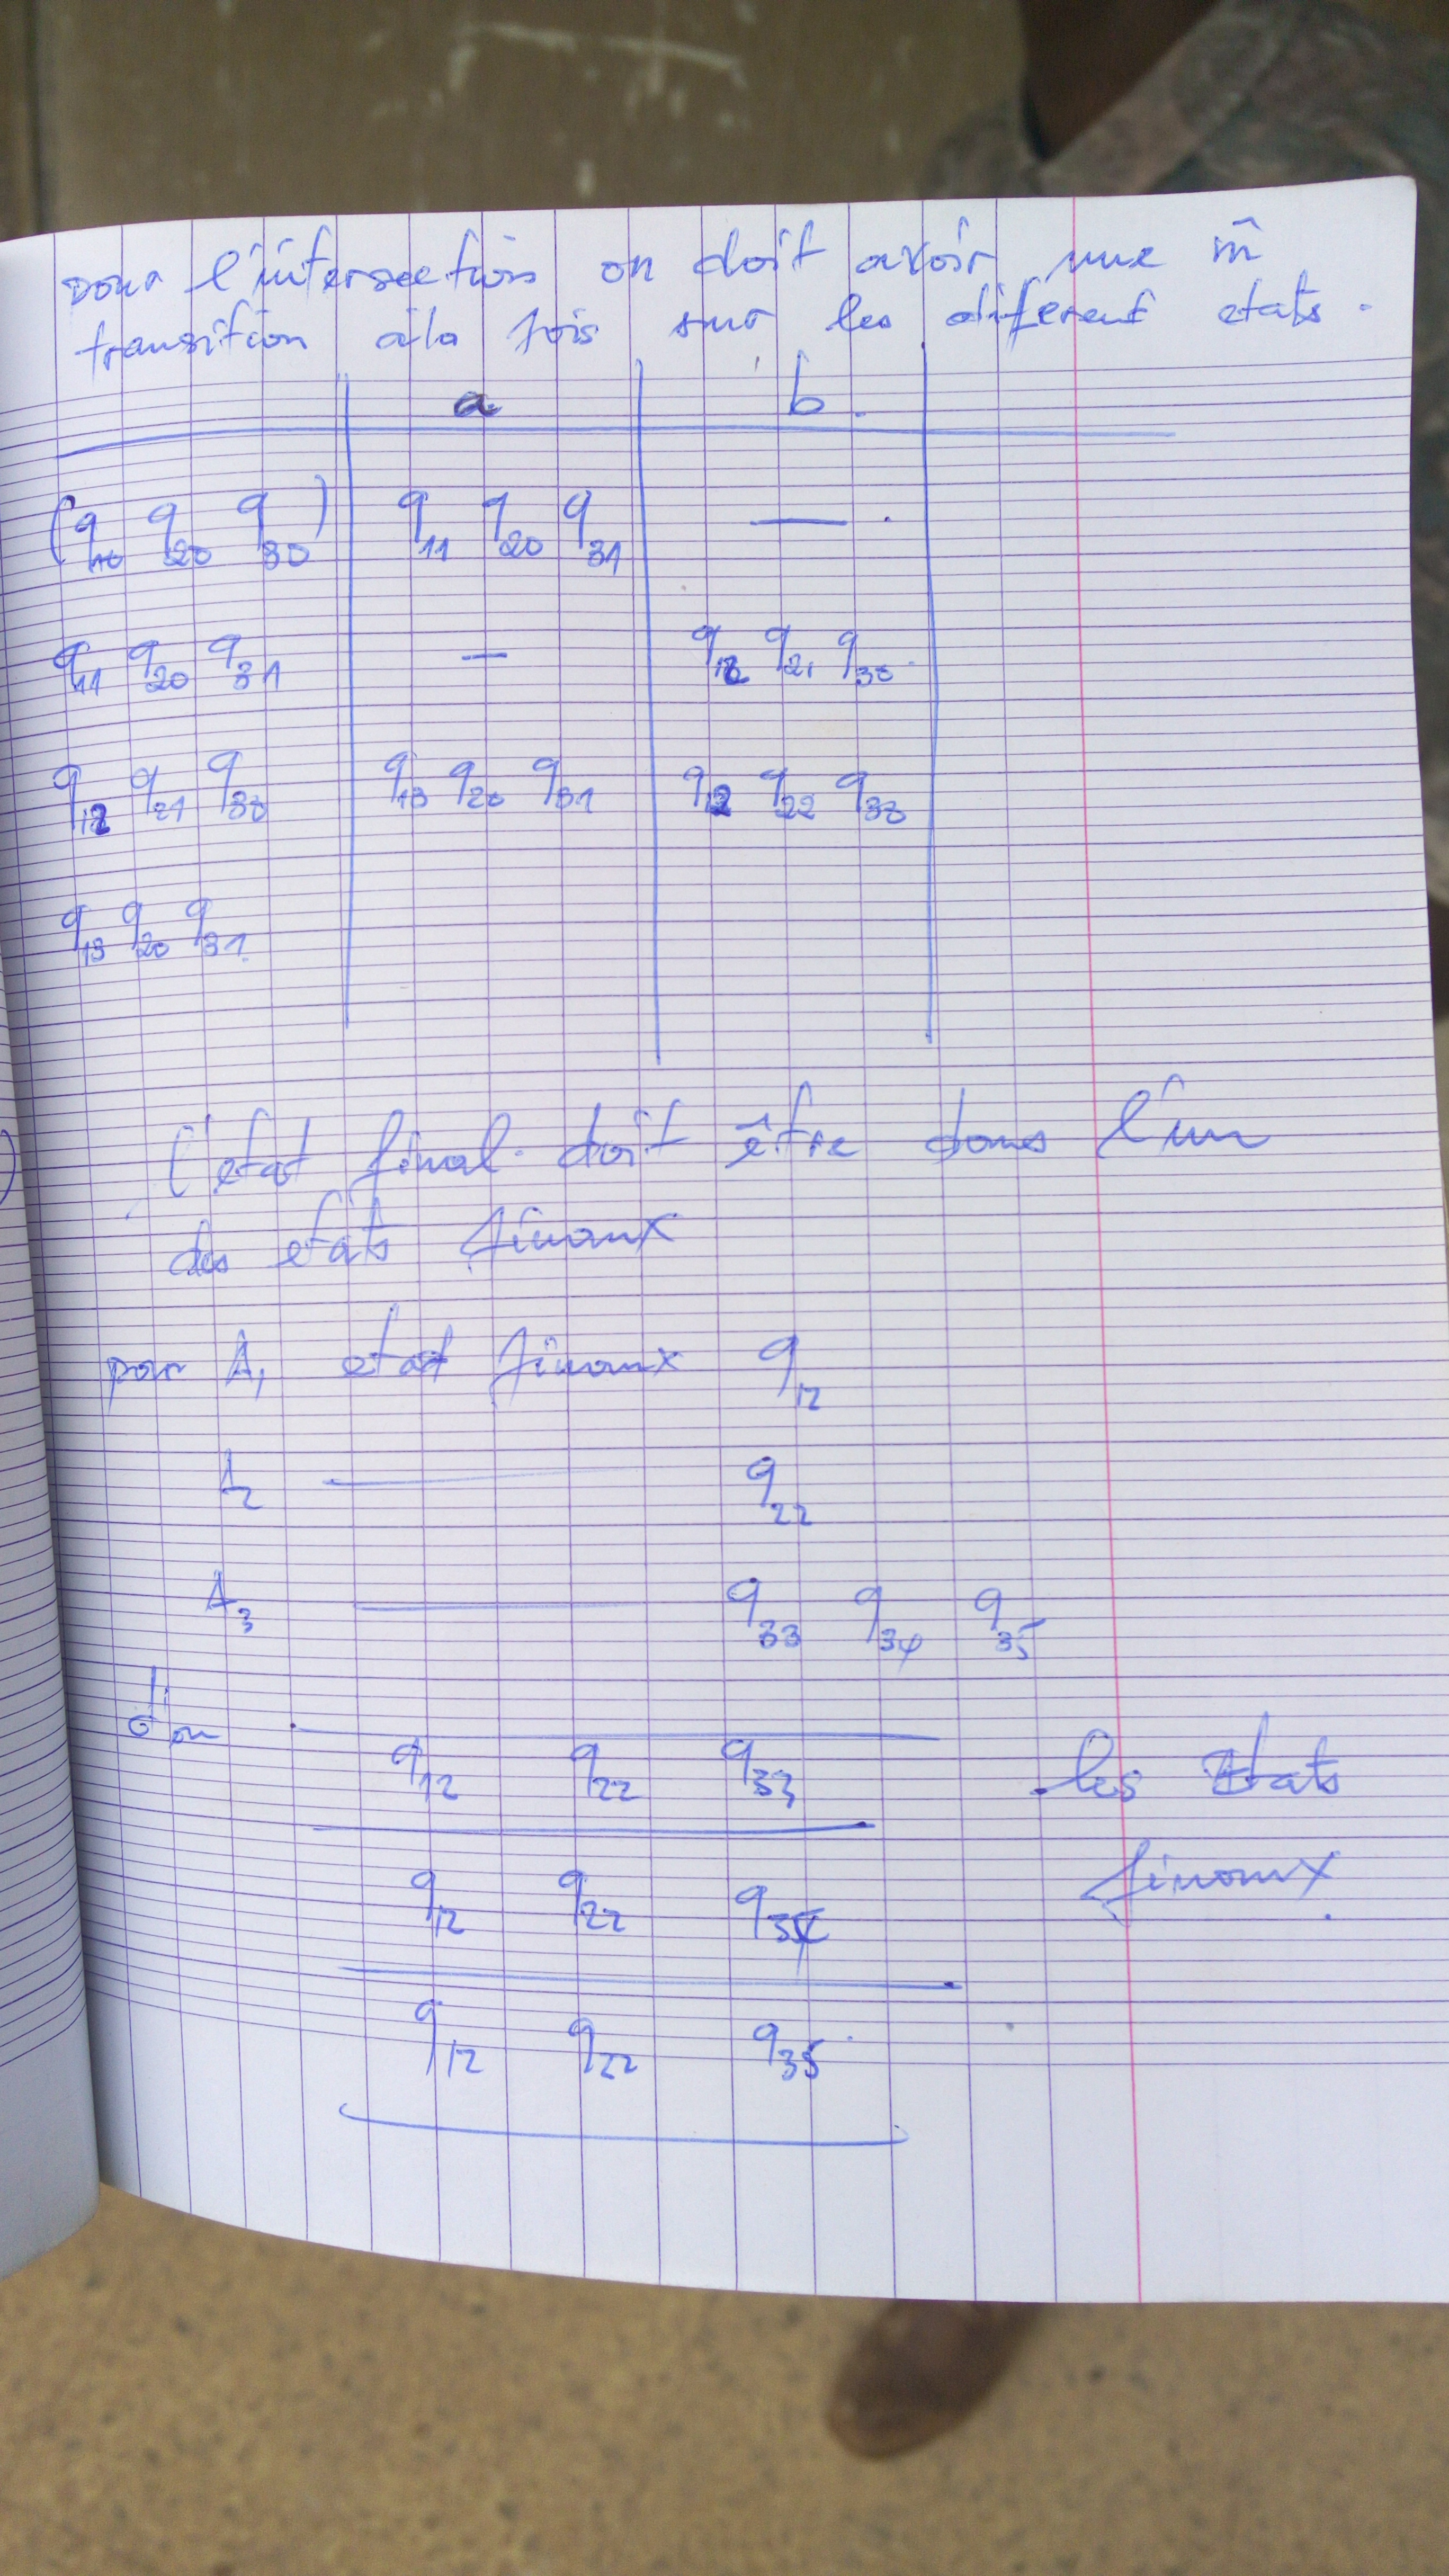 pour l'intersection on doit avoir une m̃
transition à la fois sur les diférent etats.
a b.
(q10 q20 q30) q11 q20 q31 — .
q11 q20 q31 — q12 q21 q33
q12 q21 q33 q13 q20 q31 q12 q22 q33
q13 q20 q31
l'etat final doit être dans l'un
des etats finaux
pour A1 etat finaux q12
A2 — q22
A3 — q33 q34 q35
d'ou
q12 q22 q33 . les Etats
q12 q22 q34 finaux.
q12 q22 q35